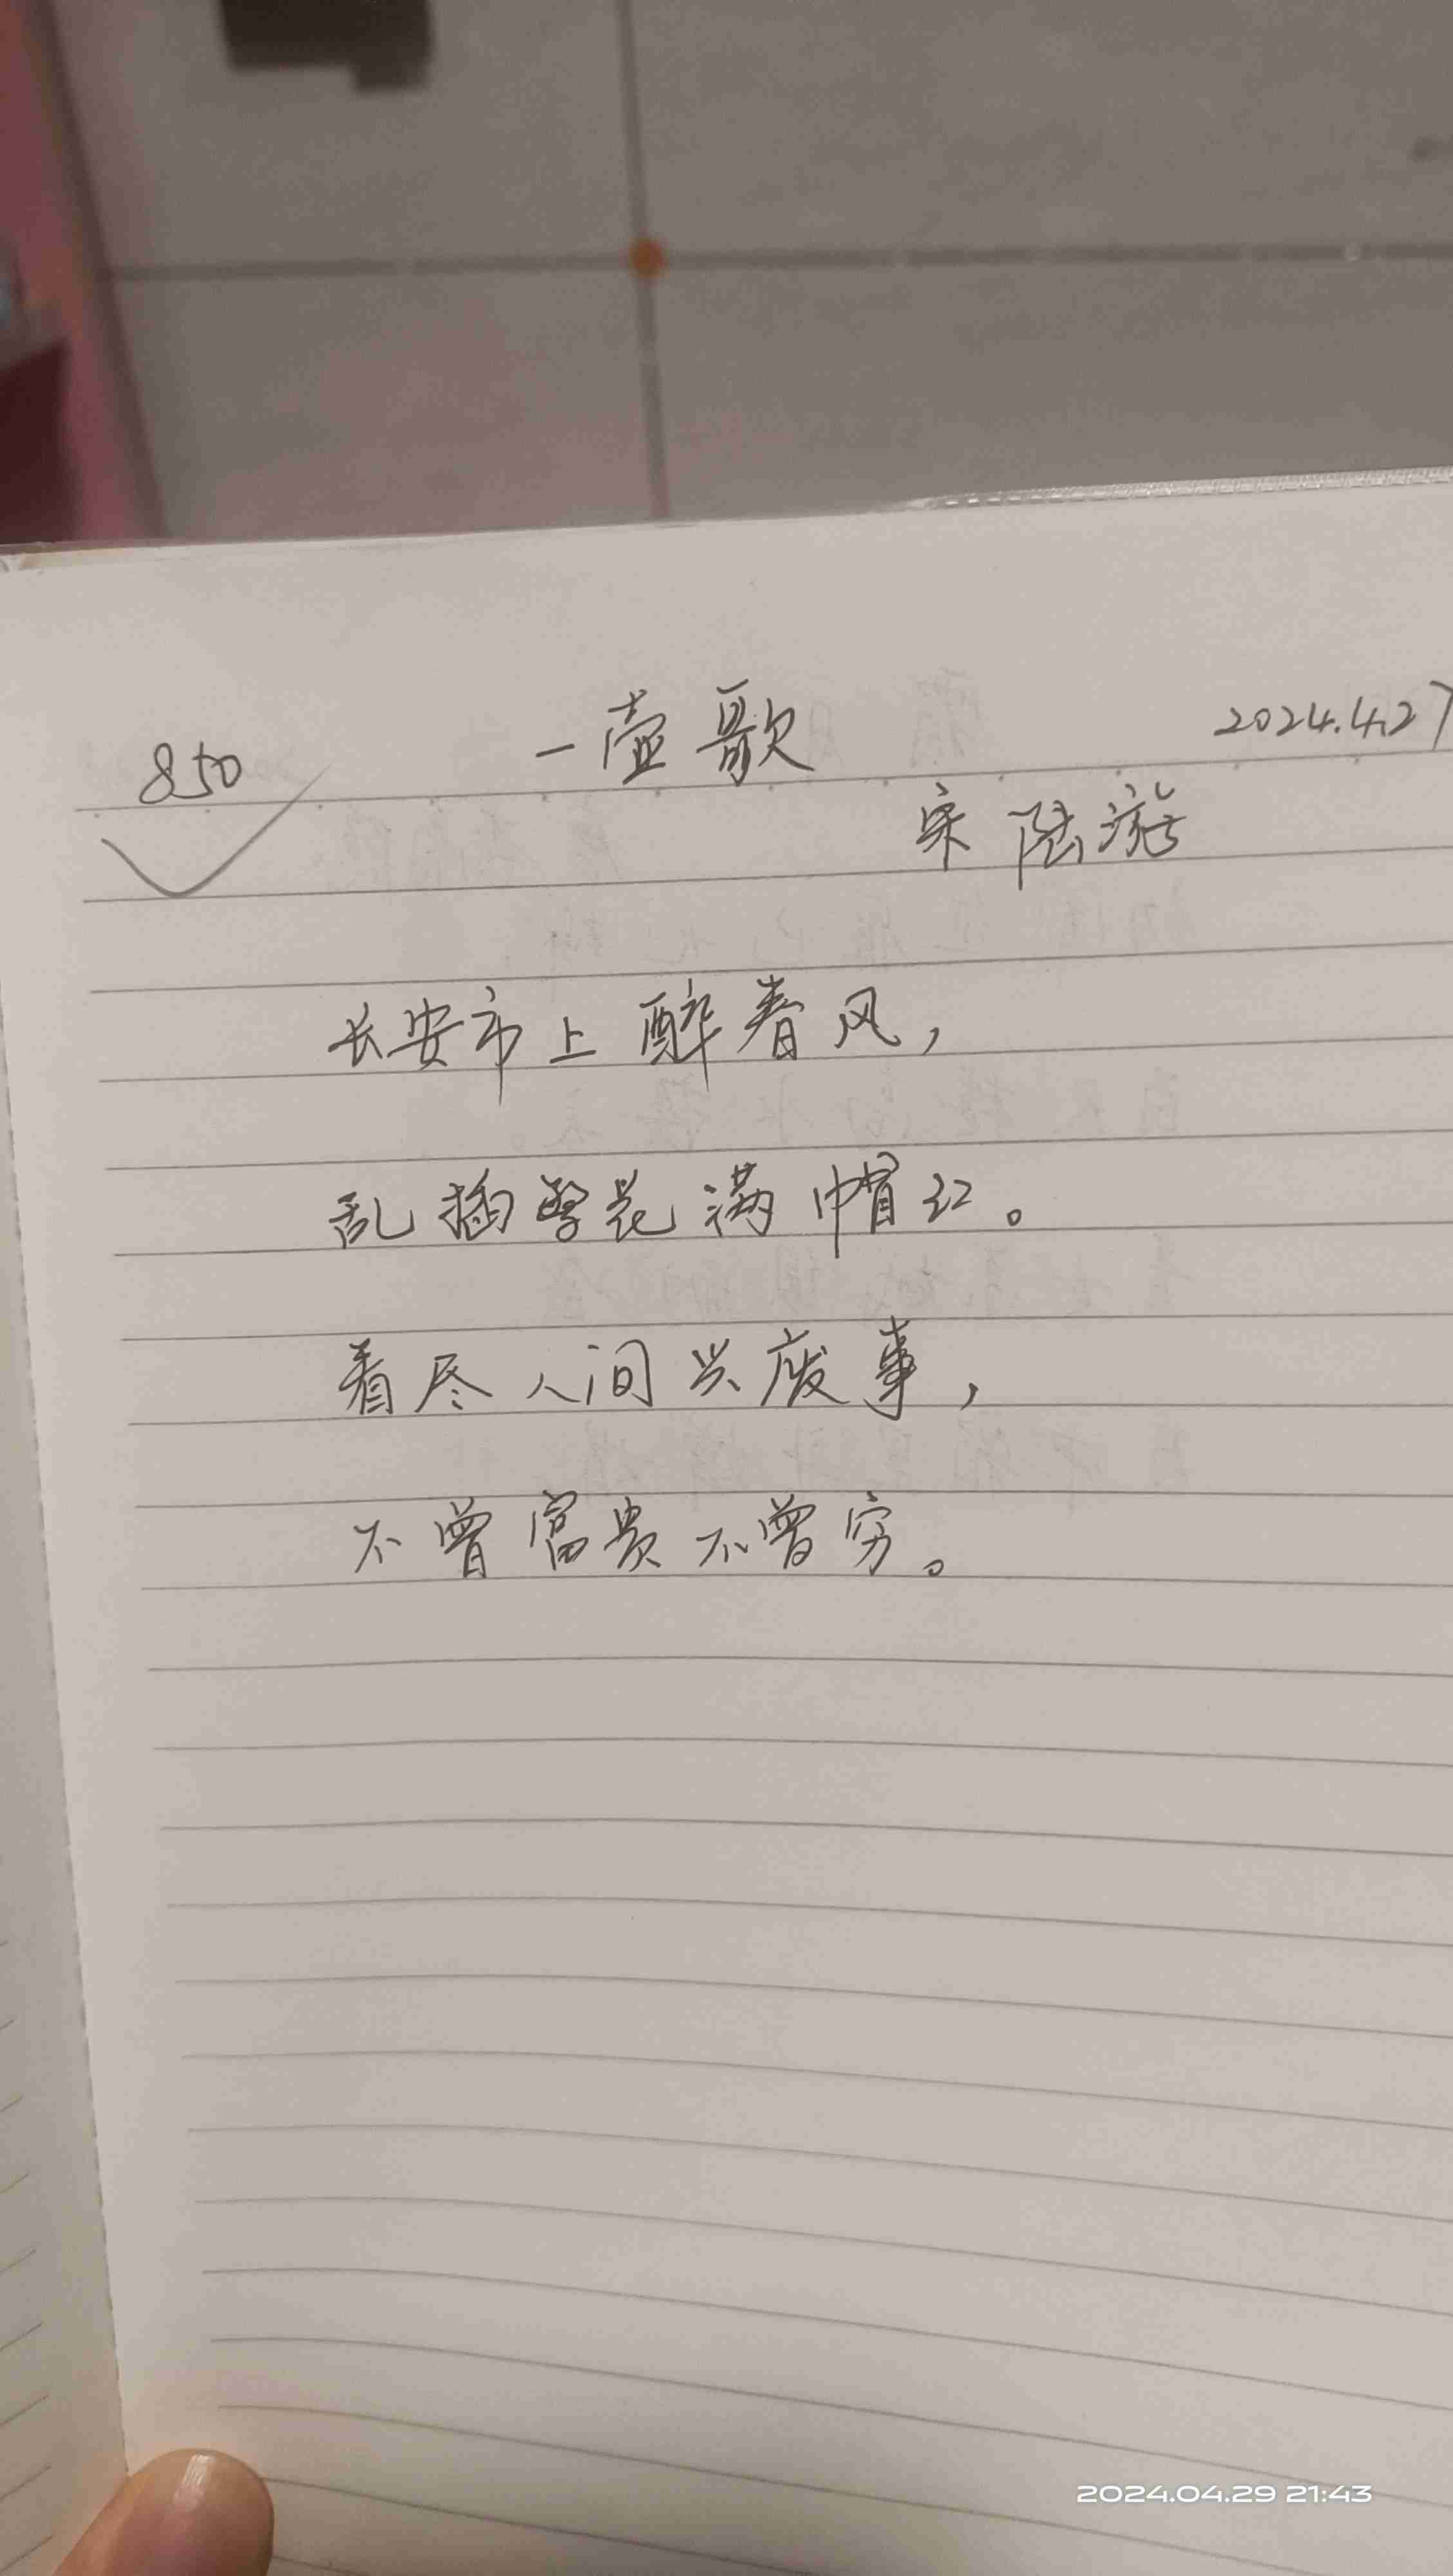 850 一壶歌 2024.4.27
宋 陆游
长安市上醉春风，
乱插繁花满帽红。
看尽人间兴废事，
不曾富贵不曾穷。
2024.04.29 21:43